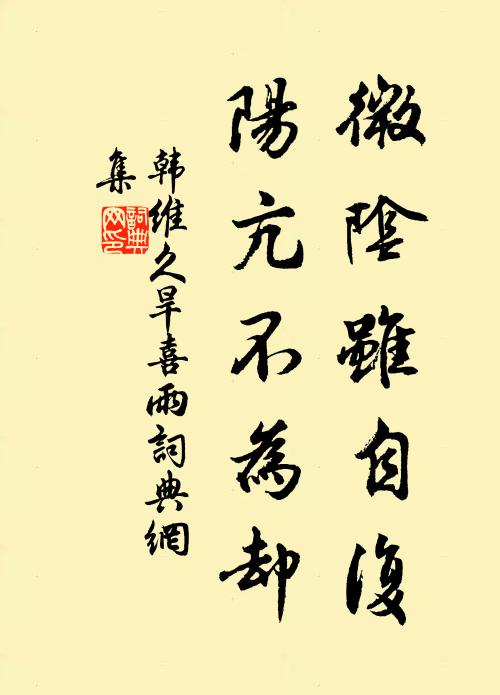 微陰雖自復
陽亢不為却
韩維久旱喜雨詞典網
集
詞典
网印